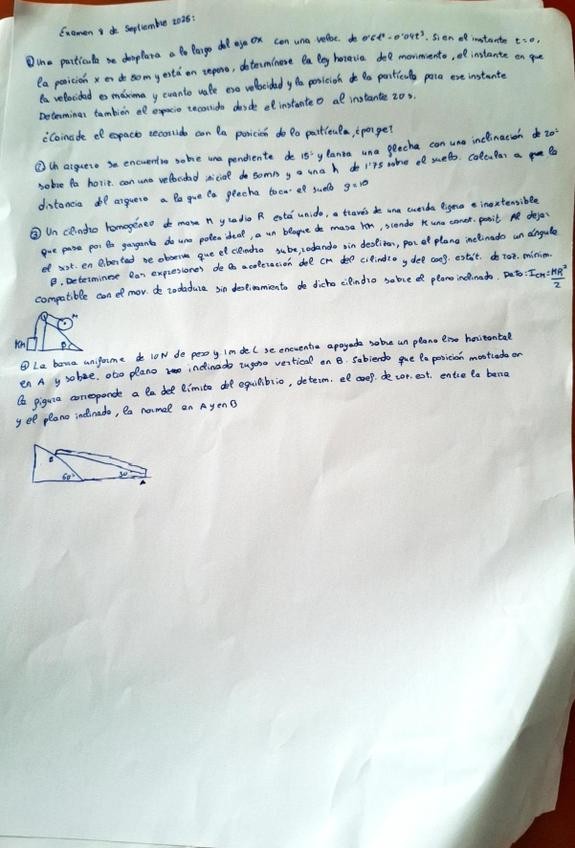 Examen 8 de Septiembre 2025:
① Una partícula se desplaza a lo largo del eje OX con una veloc. de 0'6t² - 0'04t³. Si en el instante t=0,
la posición x es de 80m y está en reposo, determínese la ley horaria del movimiento, el instante en que
la velocidad es máxima y cuanto vale esa velocidad y la posición de la partícula para ese instante
Determinar también el espacio recorrido desde el instante 0 al instante 20s.
¿Coincide el espacio recorrido con la posición de la partícula, ¿porqe?
② Un arquero se encuentra sobre una pendiente de 15º y lanza una flecha con una inclinación de 20º
sobre la horiz. con una velocidad inicial de 50m/s y a una h de 1'75 sobre el suelo. Calcular a que
distancia del arquero a la que la flecha toca el suelo g=10
③ Un cilindro homogéneo de masa M y radio R está unido, a través de una cuerda ligera e inextensible
que pasa por la garganta de una polea ideal, a un bloque de masa KM, siendo K una const. posit. Al dejar
el sist. en libertad se observa que el cilindro sube, rodando sin deslizar, por el plano inclinado un ángulo
β. Determínese las expresiones de la aceleración del CM del cilindro y del coef. estát. de roz. mínim.
compatible con el mov. de rodadura sin deslizamiento de dicho cilindro sobre el plano inclinado. Dato: Icm=MR²/2
KM M β
④ La barra uniforme de 10N de peso y 1m de L se encuentra apoyada sobre un plano liso horizontal
en A y sobre otro plano inclinado rugoso vertical en B. Sabiendo que la posición mostrada en
la figura corresponde a la del límite del equilibrio, determ. el coef. de roz. est. entre la barra
y el plano inclinado, la normal en A y en B
B 60º 30º A